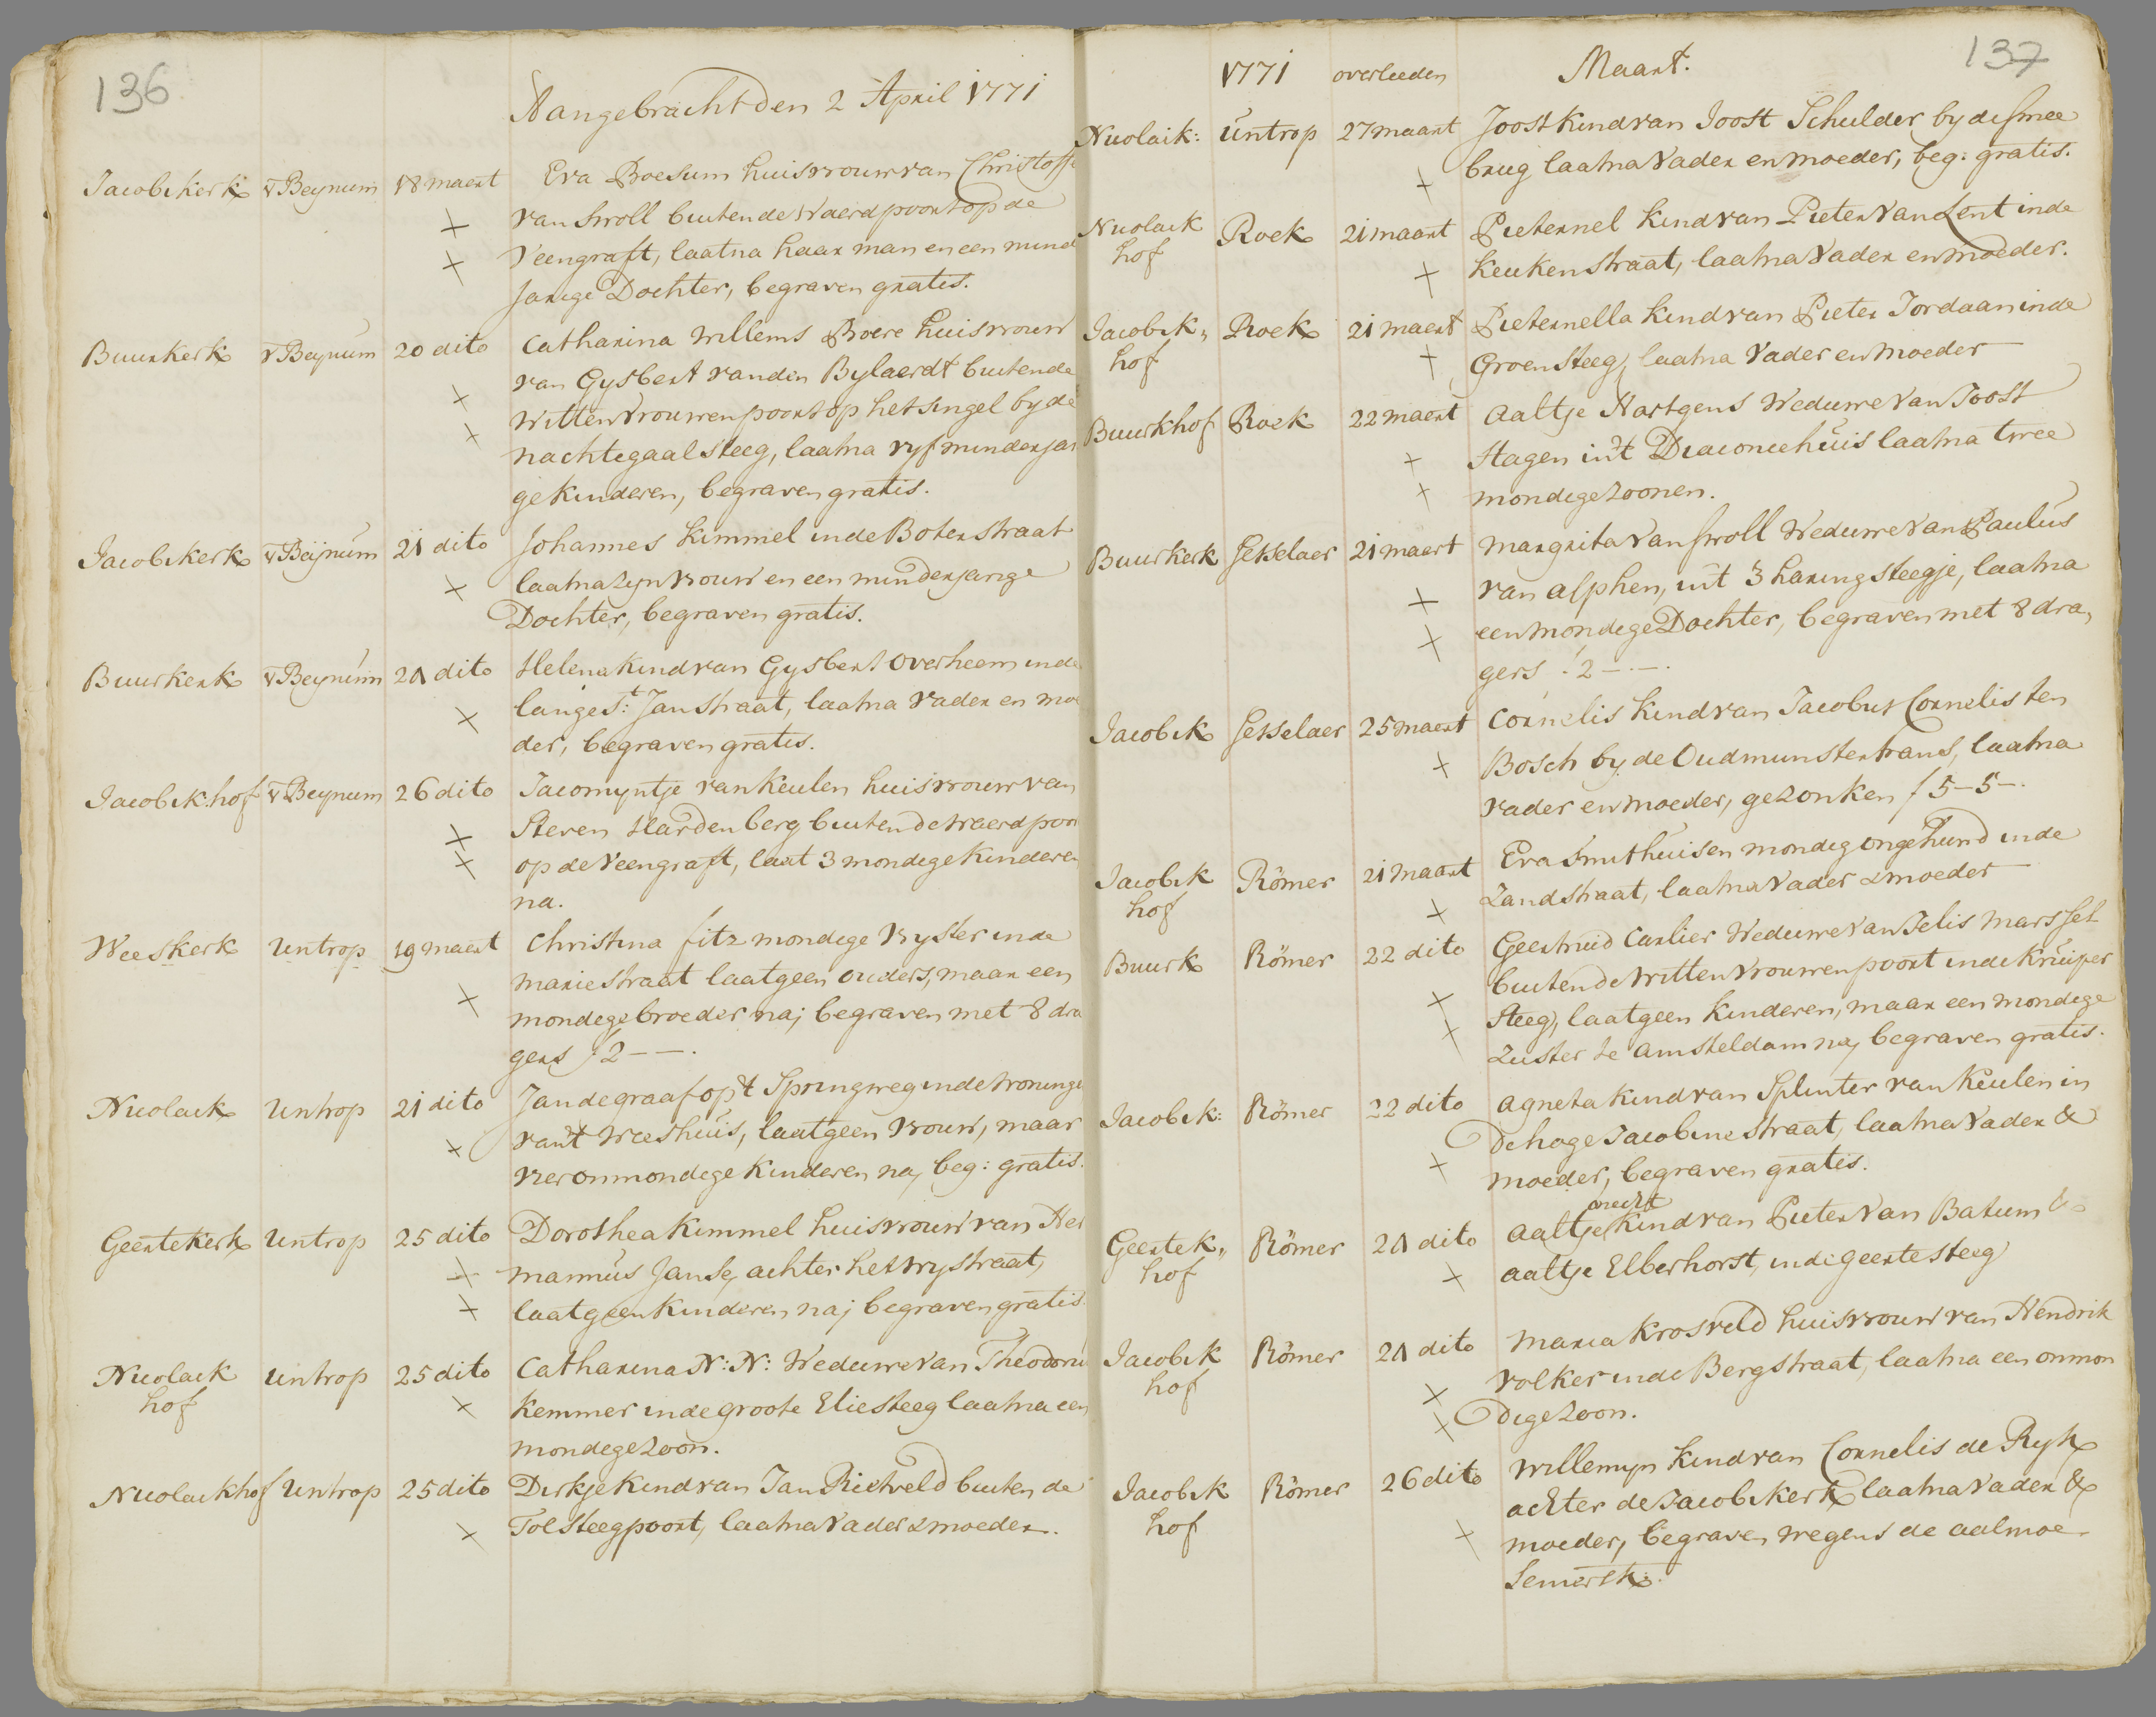 136
Aangebracht den 2 April 1771
Jacobikerk v Beynum 18 maert Eva Boesum huisvrouw van Christoffe
van Swoll buiten de Waerdpoort op de
Veengraft, laatna haar man en een mind
jarige Dochter, begraven gratis.
Buurkerk v Beynum 20 dito Catharina Willems Boere huisvrouw
van Gysbert van den Bylaerdt buiten de
Wittevrouwenpoort op het singel by de
nachtegaal steeg, laatna vyf minderjar
ge kinderen, begraven gratis.
Jacobikerk v Beynum 21 dito Johannes Kimmel inde Boterstraat
laatna zyn vrouw en een minderjarige
Dochter, begraven gratis.
Buurkerk v Beynum 21 dito Helena kind van Gysbert Overheem inde
lange St: Jan straat, laatna vader en moe
der, begraven gratis.
Jacobik:hof v Beynum 26 dito Jacomyntje van Keulen huisvrouw van
Steven Hardenberg buiten de Waerdpoor
op de Veengraft, laat 3 mondige kinderen
na.
Weeskerk Untrop 19 maert Christina Fitz mondige vryster inde
marie straat laat geen ouders, maar een
mondige broeder na; begraven met 8 dra
gers f 2 - - .
Nicolaik Untrop 21 dito Jan de graaf op 't Springweg inde woninge
van 't Weeshuis, laat geen vrouw, maar
vier onmondige kinderen na, beg: gratis.
Geertekerk Untrop 25 dito Dorothea Kimmel huisvrouw van Her
mannus Janse, achter het vrystraat,
laat geen kinderen na; begraven gratis
Nicolaik
hof Untrop 25 dito Catharina N: N: Weduwe van Theodoru
Kemmer inde groote Eliesteeg laatna een
mondige zoon.
Nicolaikhof Untrop 25 dito Dirkje kind van Jan Rietveld buiten de
Tolsteegpoort, laatna vader & moeder.
137
1771 overleeden Maart.
Nicolaik: Untrop 27 maart Joost kind van Joost Schulder by de smee
brug laatna vader en moeder, beg: gratis.
Nicolaik
hof Roek 21 maart Pieternel kind van Pieter van Lent inde
keuken straat, laatna vader en moeder.
Jacobik„
hof Roek 21 maert Pieternella kind van Pieter Jordaan inde
Groensteeg, laatna vader en moeder
Buurkhof Roek 22 maert Aaltje Hartgens Weduwe van Joost
Hagen in 't Diaconiehuis laatna twee
mondige zoonen.
Buurkerk Gesselaer 21 maert Margrita van Swoll Weduwe van Paulus
van Alphen, uit 3 haring steegje, laatna
een mondige Dochter, begraven met 8 dra„
gers f 2 - . - .
Jacobik Gesselaer 25 maert Cornelis kind van Jacobus Cornelis ten
Bosch by de Oudmunstertrans, laatna
vader en moeder, gezonken f 5-5-.
Jacobik
hof Römer 21 maart Eva Smithuisen mondig ongehuwd inde
Zandstraat, laatna vader & moeder
Buurk Römer 22 dito Geertruid Carlier Weduwe van Jelis Marssel
buiten de Wittevrouwenpoort inde Kruiper
steeg, laat geen kinderen, maar een mondige
zuster te Amsteldam na, begraven gratis.
Jacobik: Römer 22 dito Agneta kind van Splinter van Keulen in
de hoge Jacobine straat, laatna vader &
moeder, begraven gratis.
onecht
Geertek„
hof Römer 21 dito Aaltje kind van Pieter van Batum &
Aaltje Elberhorst, inde geerte steeg
Jacobik
hof Römer 21 dito Maria Krosveld huisvrouw van Hendrik
volker inde Bergstraat, laatna een onmon
dige zoon.
Jacobik
hof Römer 26 dito Willemyn kind van Cornelis de Ryk
achter de Jacobikerk laatna vader &
moeder, begraven wegens de aalmoe